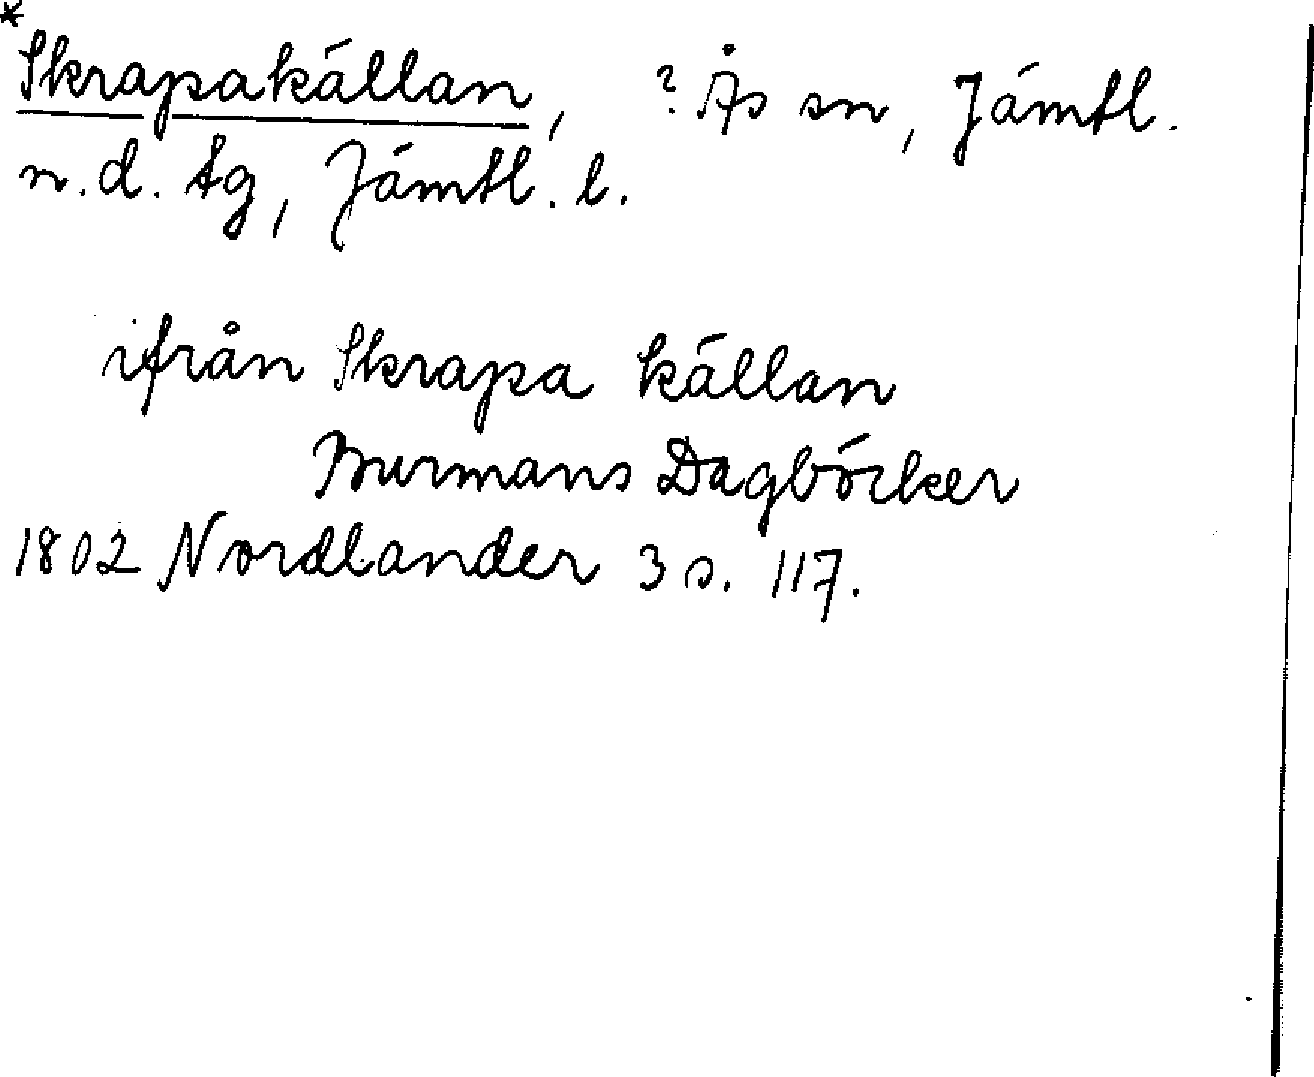 *
Skrapakällan, ? Ås sn, Jämtl.
n. d. tg, Jämtl. l.
ifrån Skrapa källan
Burmans Dagböcker
1802 Nordlander 3 s. 117.